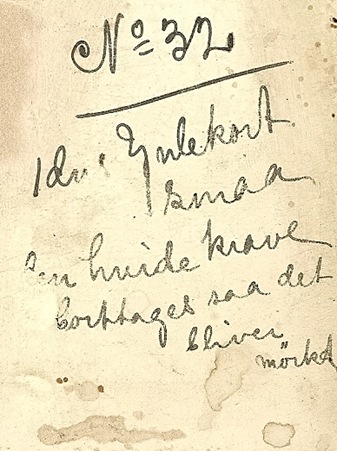 No 32
1 du. Julekort
smaa
Den hvide krave
borttages saa det
bliver
mörkt